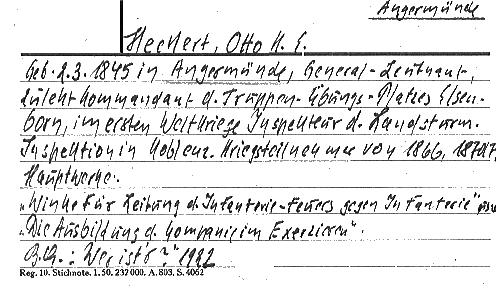 Angermünde
Heckert, Otto K. E.
Geb. 2.3.1845 in Angermünde, General-Leutnant,
zuletzt Kommandant d. Truppen-Übungs-Platzes Elsen-
born, im ersten Weltkriege Inspekteur d. Landsturm-
Inspektion in Koblenz. Kriegsteilnehmer von 1866, 1870/71
Hauptwerke:
„Winke für Leitung d. Infanterie-Feuers gegen Infanterie"
„Die Ausbildung d. Kompanie im Exerzieren".
B.Q.: Wer ist's? 1922
Reg. 10. Stichnote. 1. 50. 232 000. A. 803. S. 4062